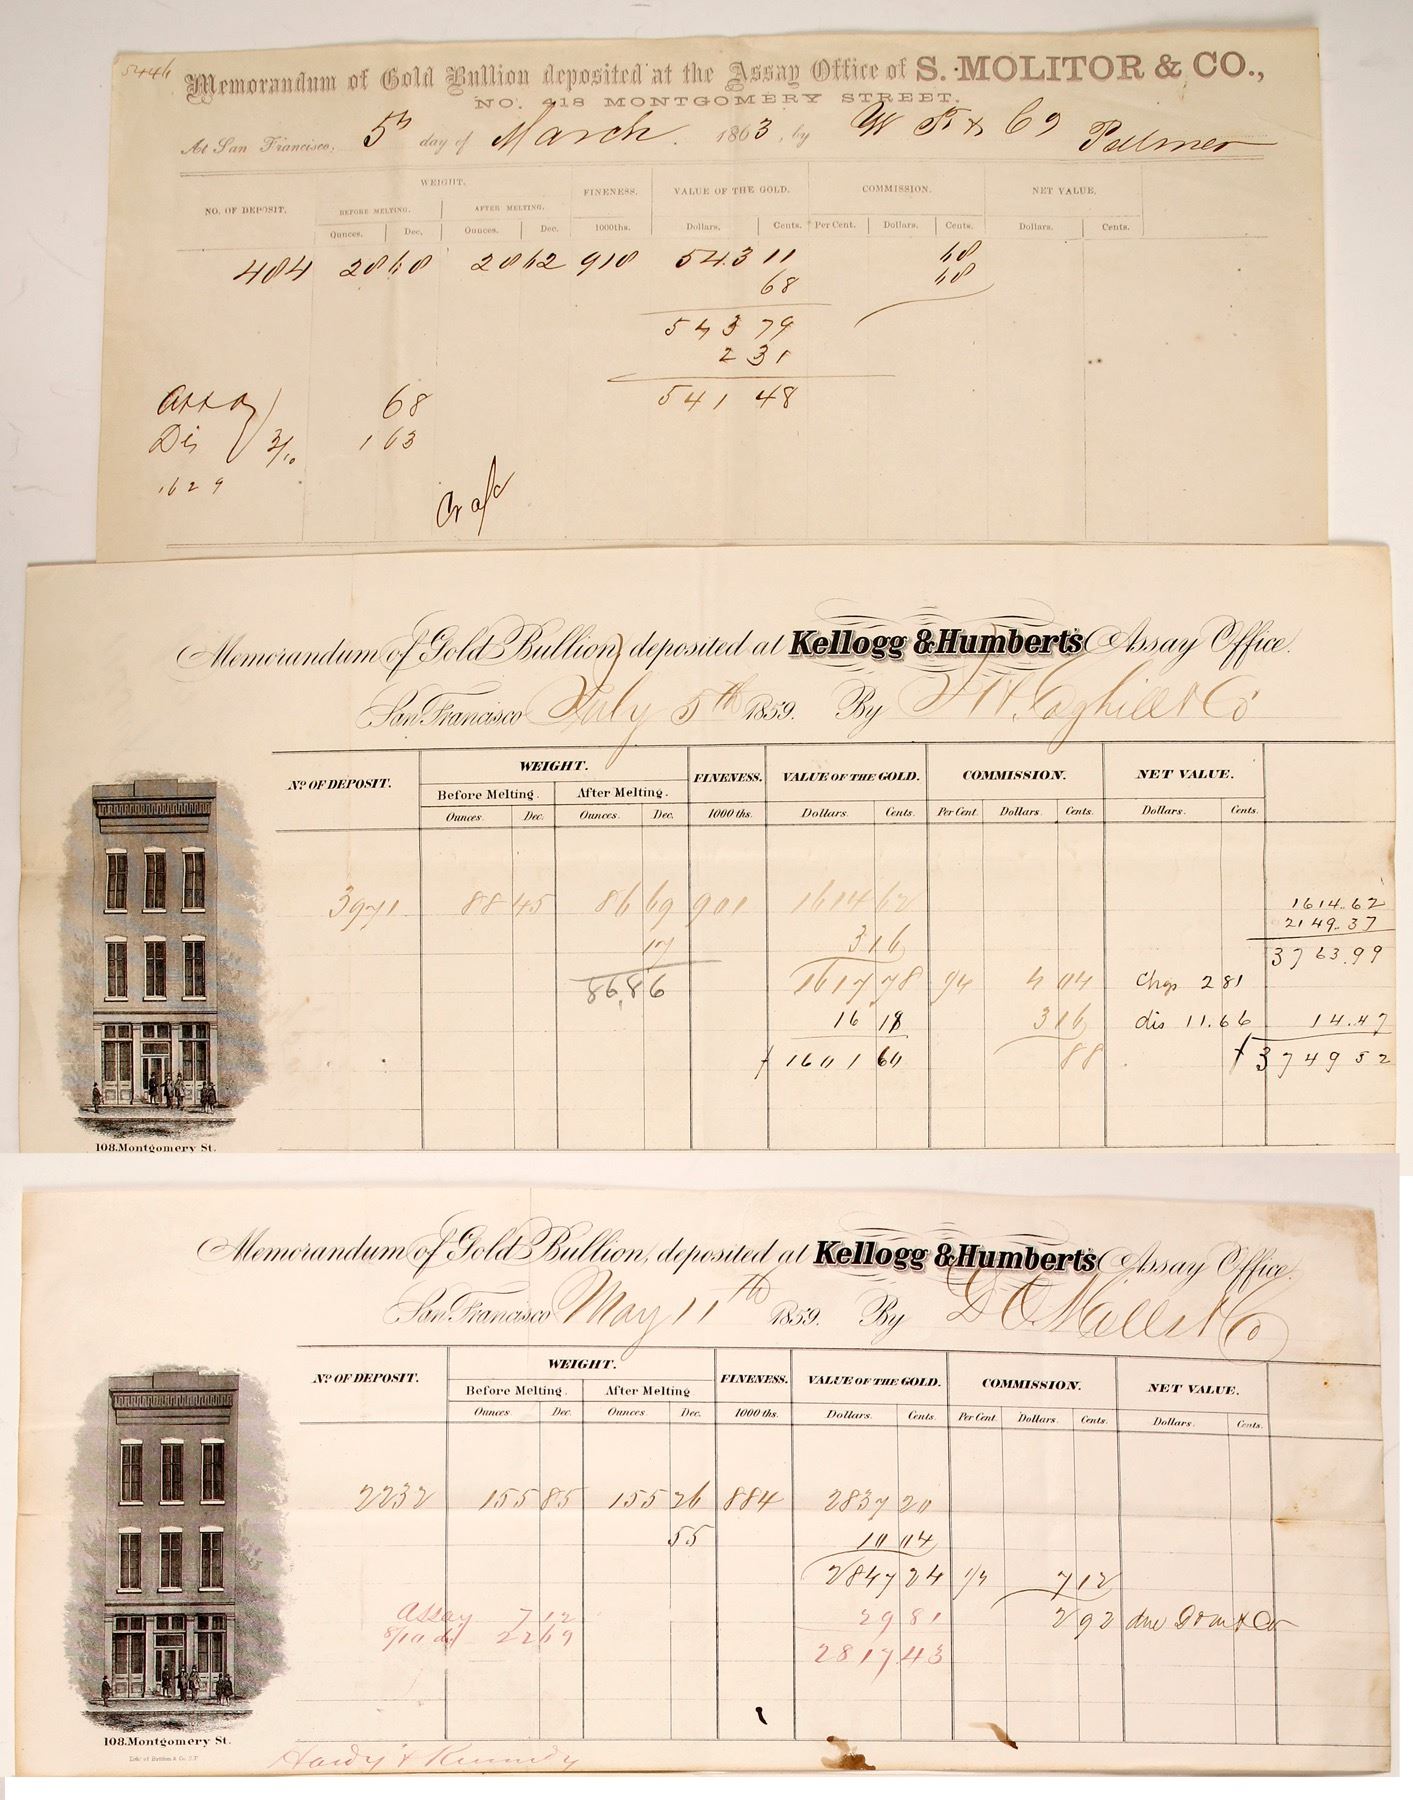 5446
Memorandum of Gold Bullion deposited at the Assay Office of S. MOLITOR & CO.,
NO. 418 MONTGOMERY STREET.
At San Francisco, 5th day of March. 1863, by W F & Co Palmer
WEIGHT. FINENESS. VALUE OF THE GOLD. COMMISSION. NET VALUE,
NO. OF DEPOSIT. BEFORE MELTING. AFTER MELTING.
Ounces. Dec. Ounces. Dec. 1000ths. Dollars. Cents. Per Cent. Dollars. Cents. Dollars. Cents.
484 28 60 28 62 918 543 11 68
68 68
543 79
2 31
541 48
Assay 68
Dis 3/10 1 63
1629
Cr a/c
Memorandum of Gold Bullion, deposited at Kellogg & Humbert's Assay Office.
San Francisco July 5th 1859. By Coghill & Co
Nº OF DEPOSIT. WEIGHT. FINENESS. VALUE OF THE GOLD. COMMISSION. NET VALUE.
Before Melting. After Melting.
Ounces. Dec. Ounces. Dec. 1000 ths. Dollars. Cents. Per Cent. Dollars. Cents. Dollars. Cents.
3971 88 45 86 69 901 1614 62 1614.62
2149.37
17 3 16 3763.99
86.86 1617 78 1/4 4 04 Chgs 2 81
16 18 3 16 dis 11.66 14.47
1601 60 88 3749 52
108. Montgomery St.
Memorandum of Gold Bullion, deposited at Kellogg & Humbert's Assay Office.
San Francisco May 11th 1859. By D O Mills & Co
Nº OF DEPOSIT. WEIGHT. FINENESS. VALUE OF THE GOLD. COMMISSION. NET VALUE.
Before Melting. After Melting
Ounces. Dec. Ounces. Dec. 1000 ths. Dollars. Cents. Per Cent. Dollars. Cents. Dollars. Cents.
2232 155 85 155 26 884 2837 20
55 10 04
2847 24 1/4 7 12
Assay 7 12 29 81 2 92 due D O M & Co
8/10 d 22 69 2817 43
108. Montgomery St.
Lith. of Britton & Co. S.F.
Hardy & Kennedy